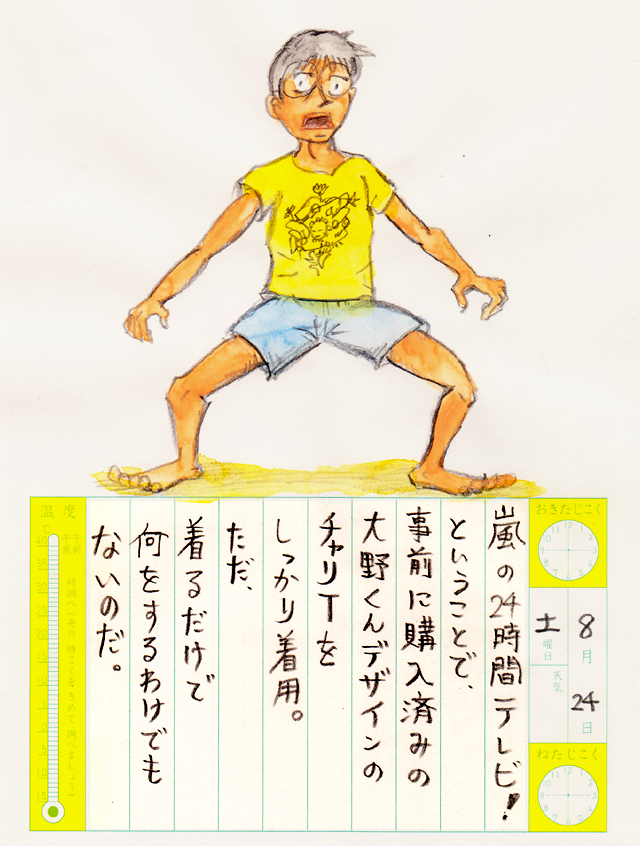 おきたじこく
8月
24日
土曜日
天気
ねたじこく
嵐の24時間テレビ!
ということで、
事前に購入済みの
大野くんデザインの
チャリTを
しっかり着用。
ただ、
着るだけで
何をするわけでも
ないのだ。
温度
℃
午前
午後
時調べ(毎日時こくをきめて調べましょう)
40
35
30
25
20
15
10
5
0
5
10
15